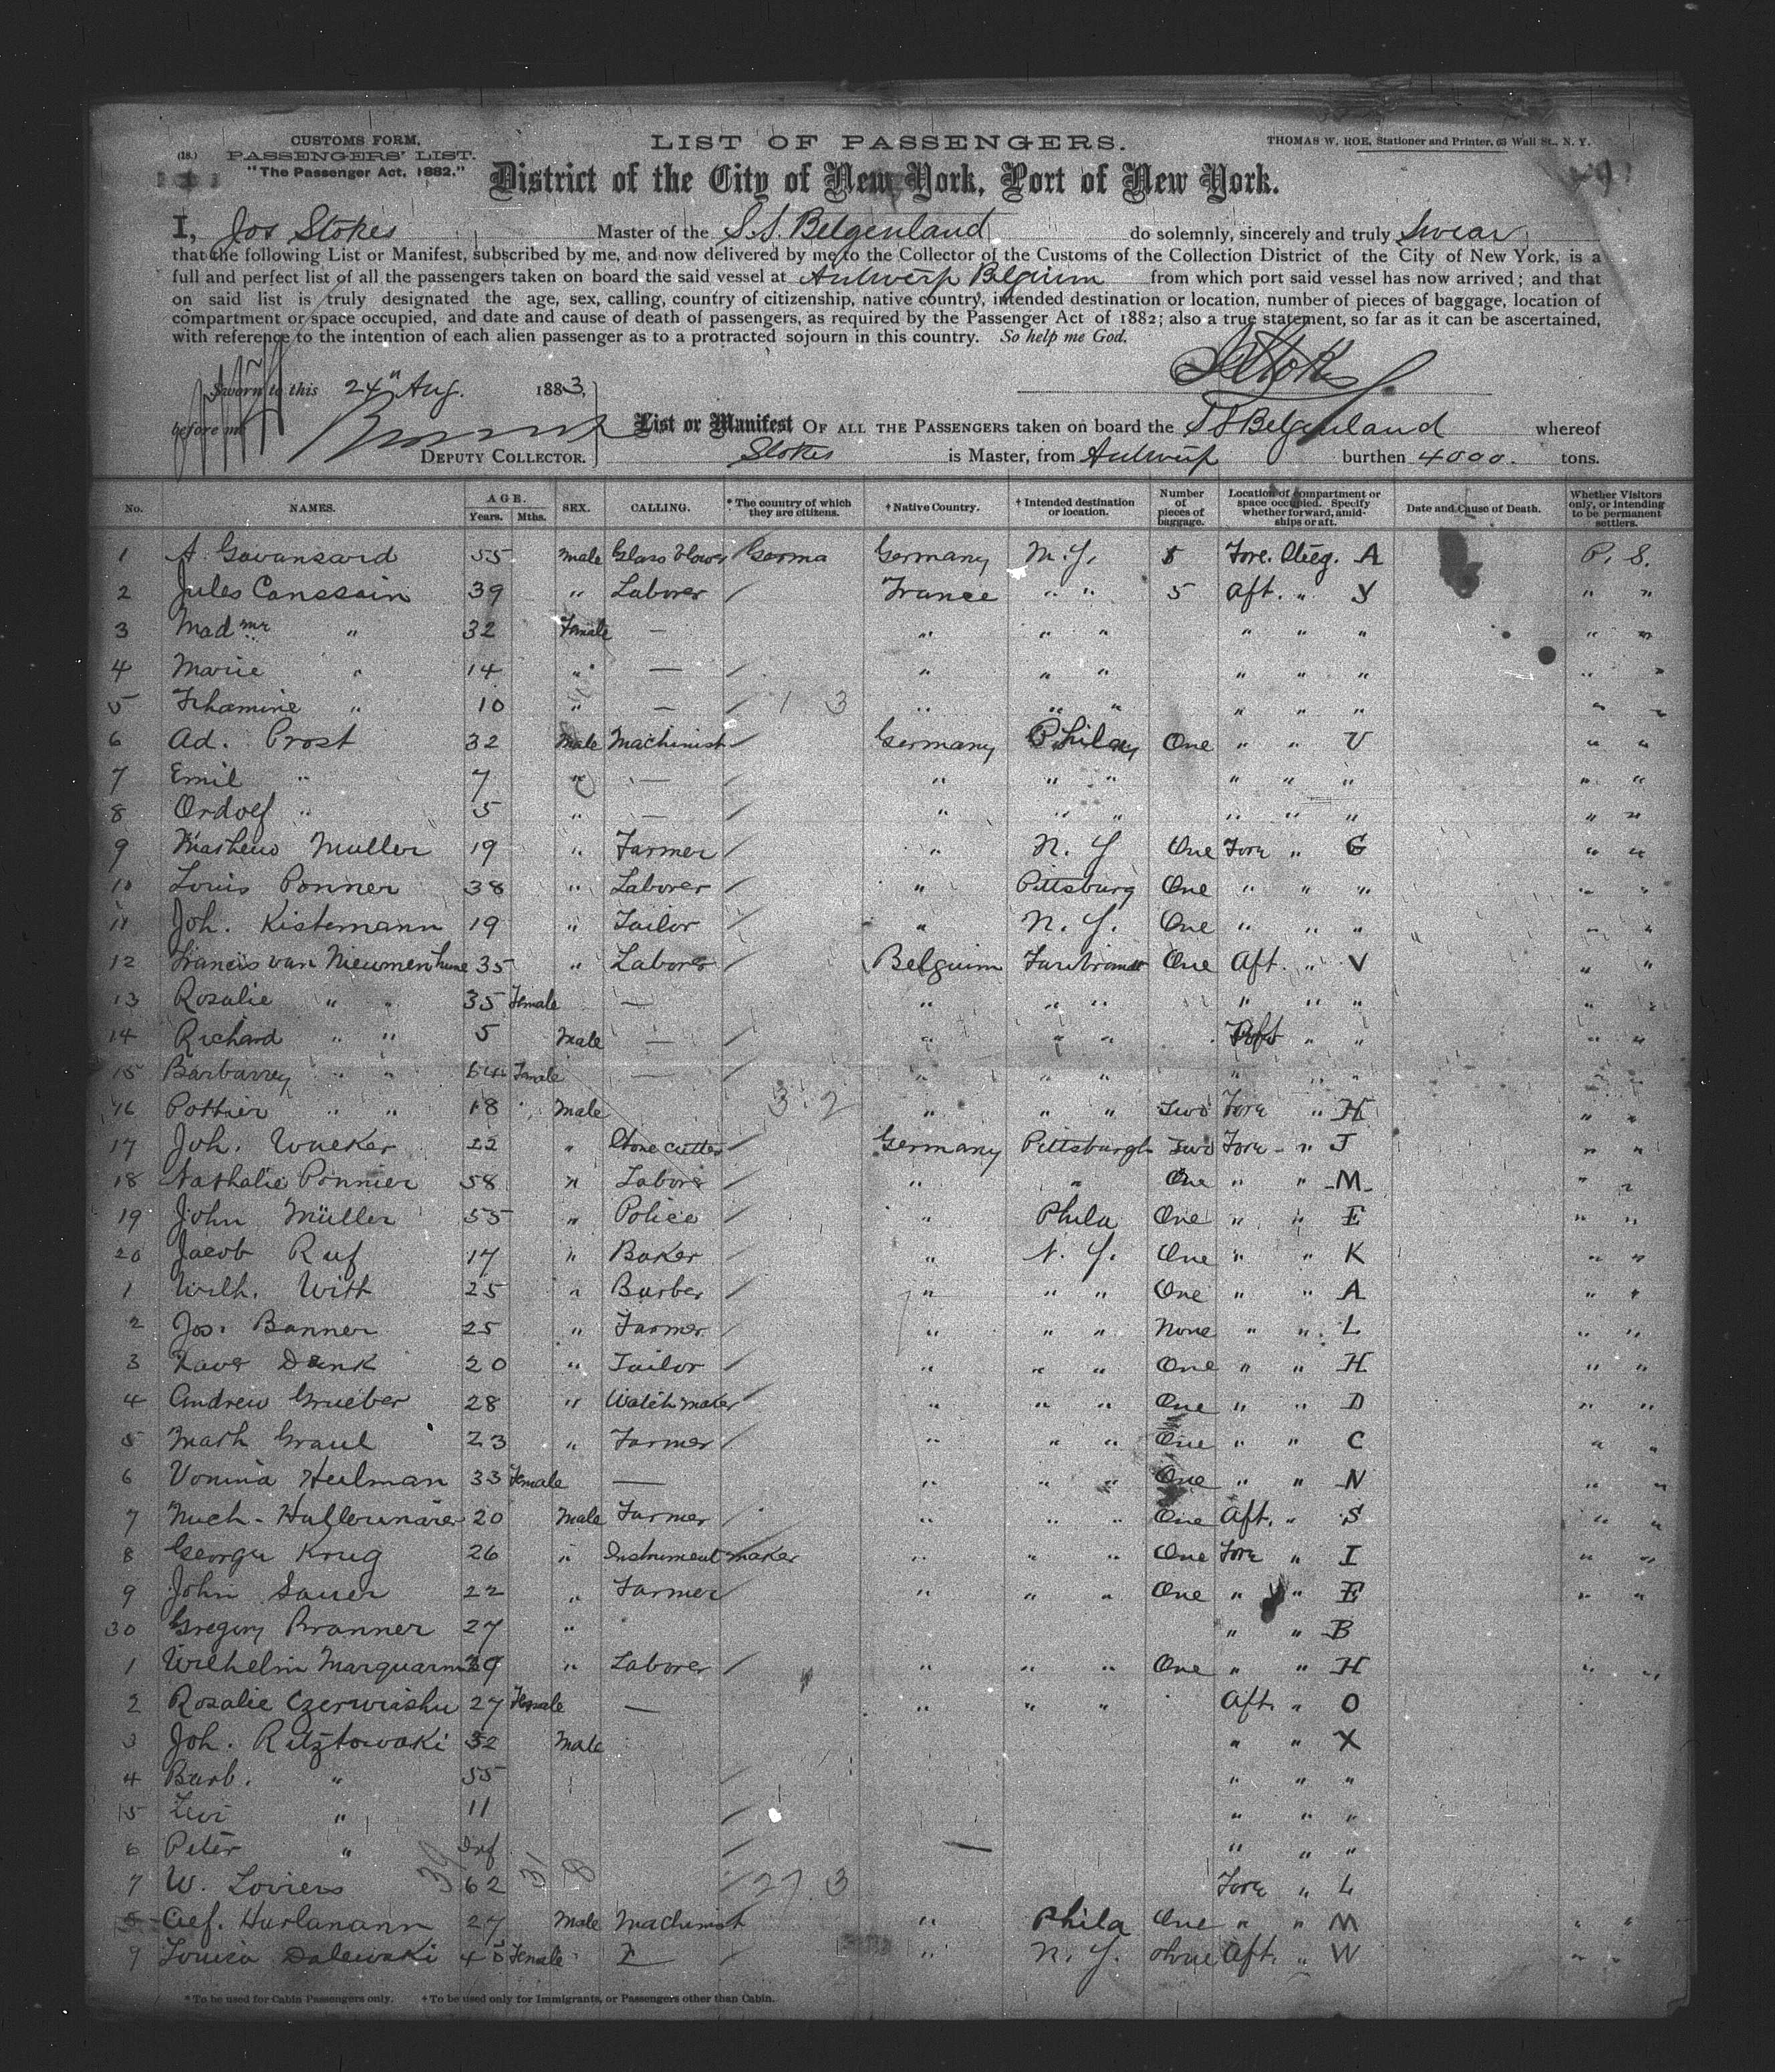 CUSTOMS FORM,
(18.) PASSENGERS' LIST.
"The Passenger Act, 1882."
LIST OF PASSENGERS.
THOMAS W. ROE, Stationer and Printer, 63 Wall St., N. Y.
District of the City of New York, Port of New York.
I, Jos Stokes Master of the S.S. Belgenland do solemnly, sincerely and truly Swear
that the following List or Manifest, subscribed by me, and now delivered by me to the Collector of the Customs of the Collection District of the City of New York, is a
full and perfect list of all the passengers taken on board the said vessel at Antwerp Belgium from which port said vessel has now arrived; and that
on said list is truly designated the age, sex, calling, country of citizenship, native country, intended destination or location, number of pieces of baggage, location of
compartment or space occupied, and date and cause of death of passengers, as required by the Passenger Act of 1882; also a true statement, so far as it can be ascertained,
with reference to the intention of each alien passenger as to a protracted sojourn in this country. So help me God.
Sworn to this 24th Aug. 1883,
before me
DEPUTY COLLECTOR.
List or Manifest OF ALL THE PASSENGERS taken on board the SS Belgenland whereof
Stokes is Master, from Antwerp burthen 4000. tons.
No. NAMES. AGE. Years. Mths. SEX. CALLING. * The country of which they are citizens. † Native Country. † Intended destination or location. Number of pieces of baggage. Location of compartment or space occupied. Specify whether forward, amidships or aft. Date and Cause of Death. Whether Visitors only, or intending to be permanent settlers.
1 A. Gavansard 55 Male Glass blower Germa Germany N.Y. 5 Fore. Steeg. A P. S.
2 Jules Canssain 39 " Laborer / France " " 5 Aft. " Y " "
3 Mad me " 32 Female — " " " " " " " "
4 Marie " 14 " — / " " " " " " " "
5 " 10 " — / 1 3 " " " " " " " "
6 Ad. Prost 32 Male Machinist / Germany Phila One " " V " "
7 Emil " 7 " — / " " " " " " " "
8 Ordolf " 5 " — / " " " " " " " "
9 Matheus Muller 19 " Farmer / " N. Y One Fore " G " "
10 Louis Ponner 38 " Laborer / " Pittsburg One " " " " "
11 Joh. Kistemann 19 " Tailor / " N. Y. One " " " " "
12 Francis van 35 " Laborer / Belguim One Aft. " V " "
13 Rosalie " " 35 Female — / " " " " " " " "
14 Richard " " 5 Male — / " " " " " " "
15 Barbarrey " " 64 Female — / " " " " " "
16 Pottier " " 18 Male 3. 2 " " " Two Fore " H " "
17 Joh. Wueker 22 " Stone cutter / Germany Pittsburgh Two Fore " J " "
18 Nathalie Ponnier 58 " Labore / " " One " " M " "
19 John Müller 55 " Police / " Phila One " " E " "
20 Jacob Ruf 17 " Baker / " N. Y. One " " K " "
1 Wilh. Witt 25 " Barber / " " " One " " A " "
2 Jos. Banner 25 " Farmer / " " " None " " L " "
3 Xaver Denk 20 " Tailor / " " " One " " H " "
4 Andrew Grueber 28 " Watch maker / " " " One " " D " "
5 Math Graul 23 " Farmer / " " " One " " C " "
6 Heilman 33 Female — " " " One " " N " "
7 20 Male Farmer / " " " One Aft. " S " "
8 George Krug 26 " Instrument maker " " " One Fore " I " "
9 John Sauer 22 " Farmer / " " " One " " E " "
30 Gregory Branner 27 " " " B
1 Wilhelm 39 " Laborer / " " " One " " H " "
2 Rosalie 27 Female — " " " Aft. " O
3 Joh. 32 Male " " X
4 Barb. " 55 / " " "
5 Levi " 11 / " " "
6 Peter " Inf / — " " "
7 W. Loviers 62 27. 3 Fore " L
Harlanann 27 Male Machinist " Phila One " " M " "
9 Louisa Dalewski 40 Female / " N. Y. ohne Aft. " W " "
* To be used for Cabin Passengers only. † To be used only for Immigrants, or Passengers other than Cabin.